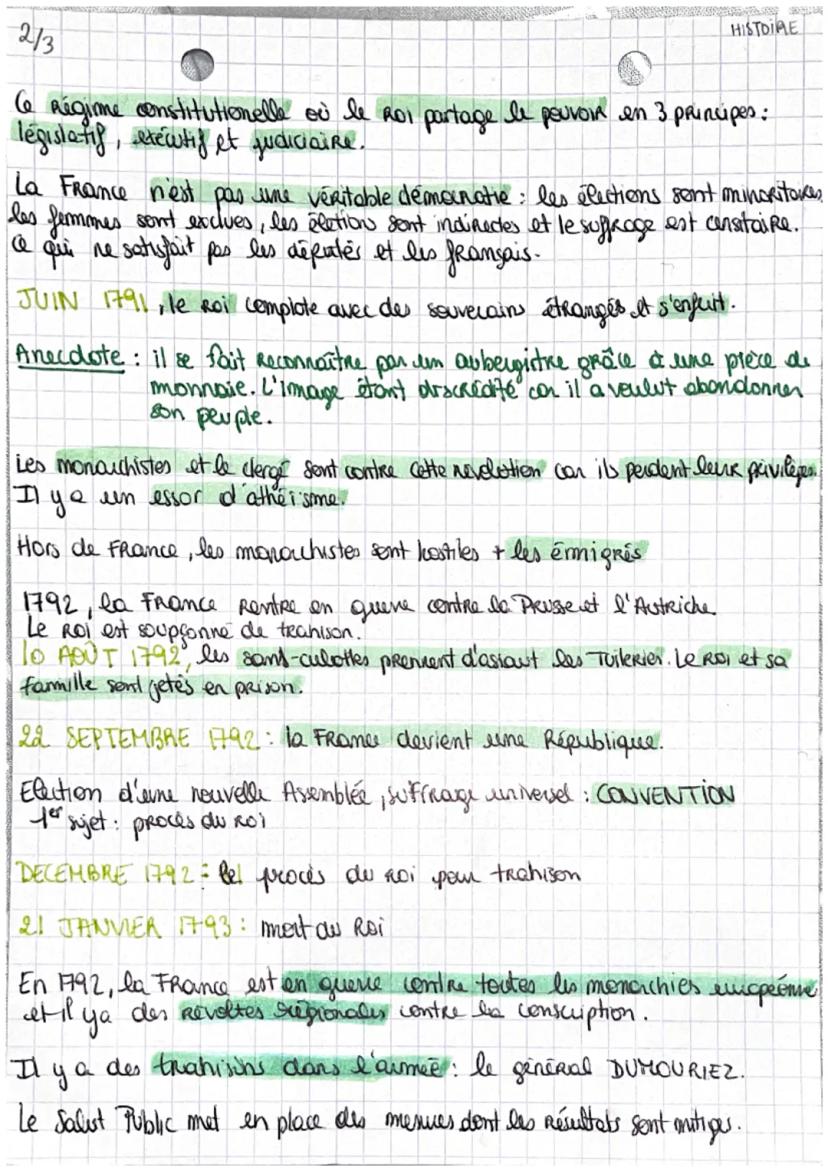 2/3
HISTOIRE
Ce Régime constitutionelle où le ROI partage le pouvoir en 3 principes :
législatif, exécutif et judiciaire.
La France n'est pas une véritable démocratie : les élections sont minoritaires,
les femmes sont exclues, les élections sont indirectes et le suffrage est censitaire.
Ce qui ne satisfait pas les députés et les français.
JUIN 1791, le Roi complote avec des souverains étrangés et s'enfuit.
Anecdote : il se fait reconnaître par un aubergistre grâce à une pièce de
monnaie. L'image étant discrédité car il a voulut abandonner
son peuple.
Les monarchistes et le clergé sont contre cette révolution car ils perdent leur privilèges.
Il y a un essor d'athéisme.
Hors de France, les monarchistes sont hostiles + les émigrés
1792, la France rentre en guerre contre la Prusse et l'Autriche.
Le Roi est soupçonné de trahison.
10 AOÛT 1792, les sans-culottes prennent d'assaut les Tuileries. Le Roi et sa
famille sont jetés en prison.
22 SEPTEMBRE 1792 : la France devient une République.
Election d'une nouvelle Assemblée, suffrage universel : CONVENTION
1er sujet : procès du Roi
DECEMBRE 1792 : procès du roi pour trahison
21 JANVIER 1793 : mort du Roi
En 1792, la France est en guerre contre toutes les monarchies européenne
et il y a des révoltes régionales contre la conscription.
Il y a des trahisons dans l'armée : le général DUMOURIEZ.
Le Salut Public met en place des mesures dont les résultats sont mitigés.